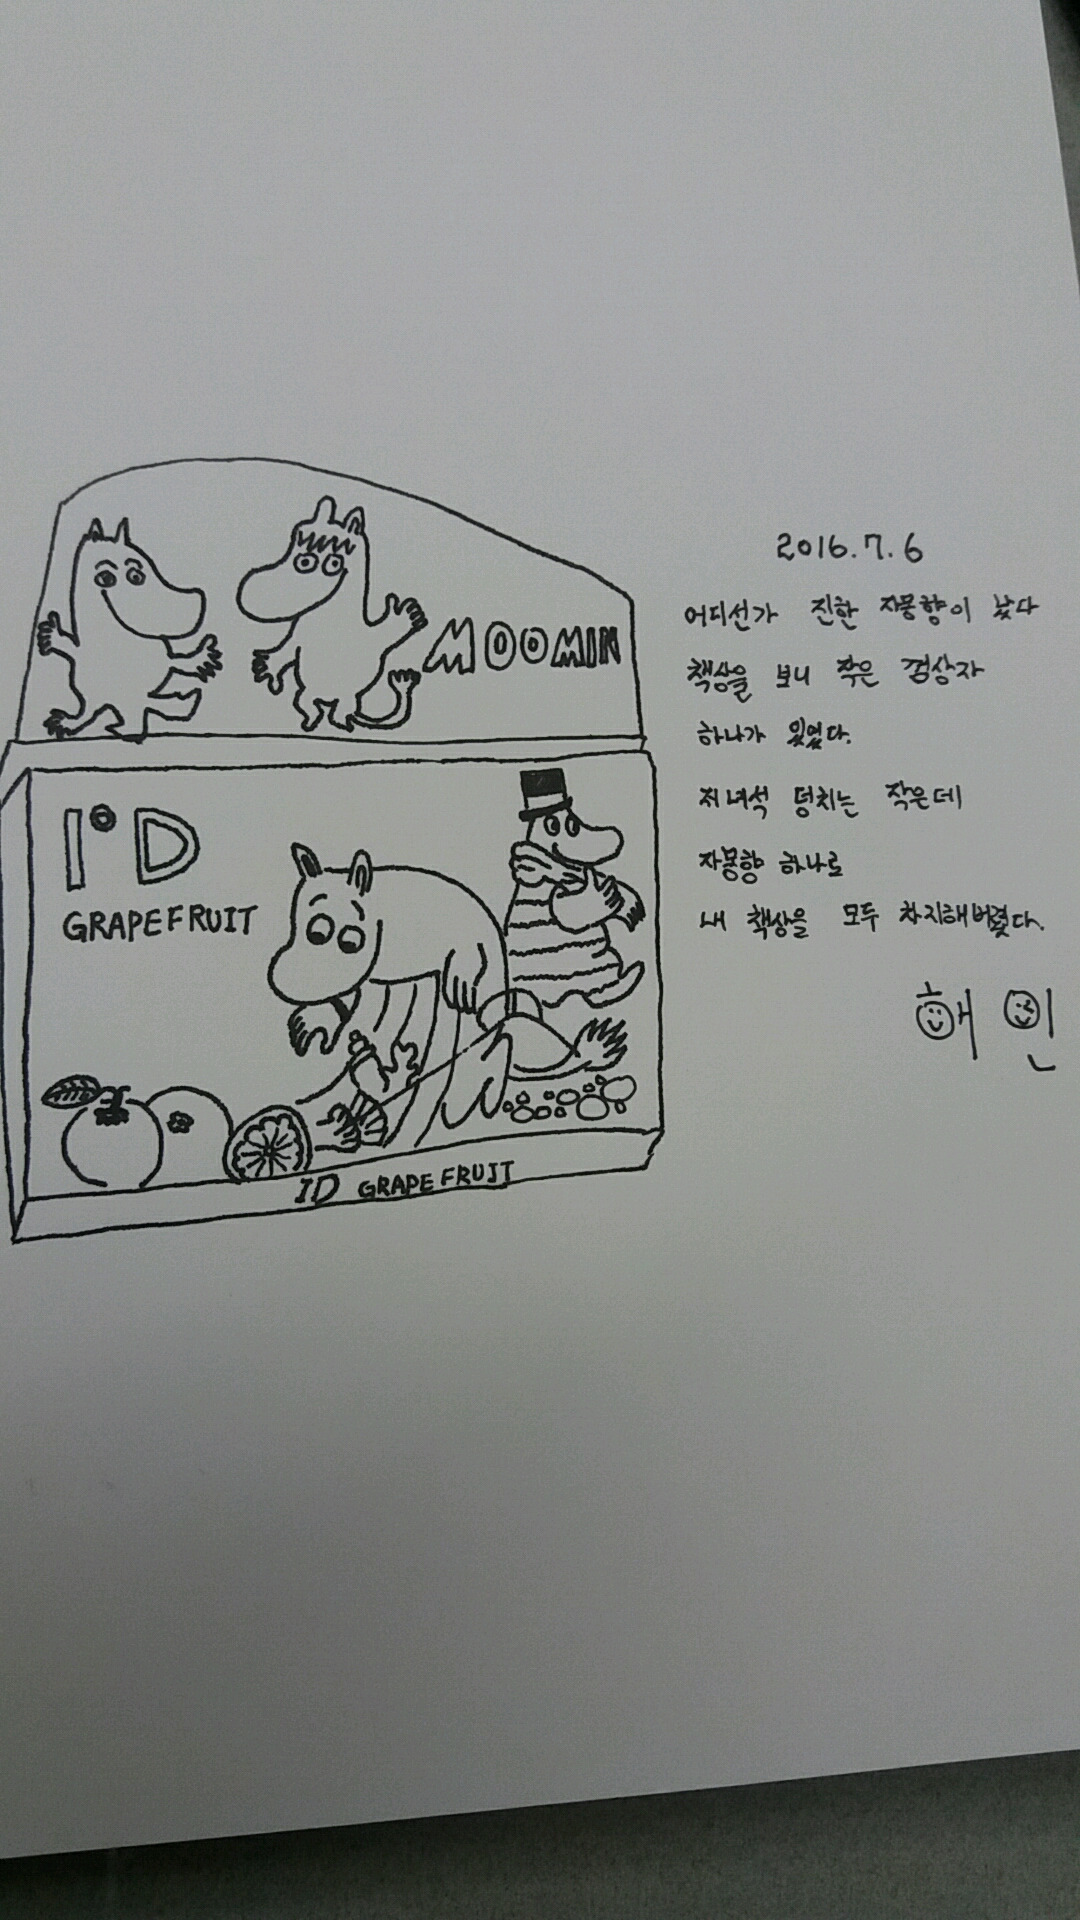 MOOMIN
I°D
GRAPEFRUIT
ID GRAPEFRUIT
2016.7.6
어디선가 진한 자몽향이 났다
책상을 보니 작은 껌상자
하나가 있었다.
저녀석 덩치는 작은데
자몽향 하나로
내 책상을 모두 차지해버렸다.
해인